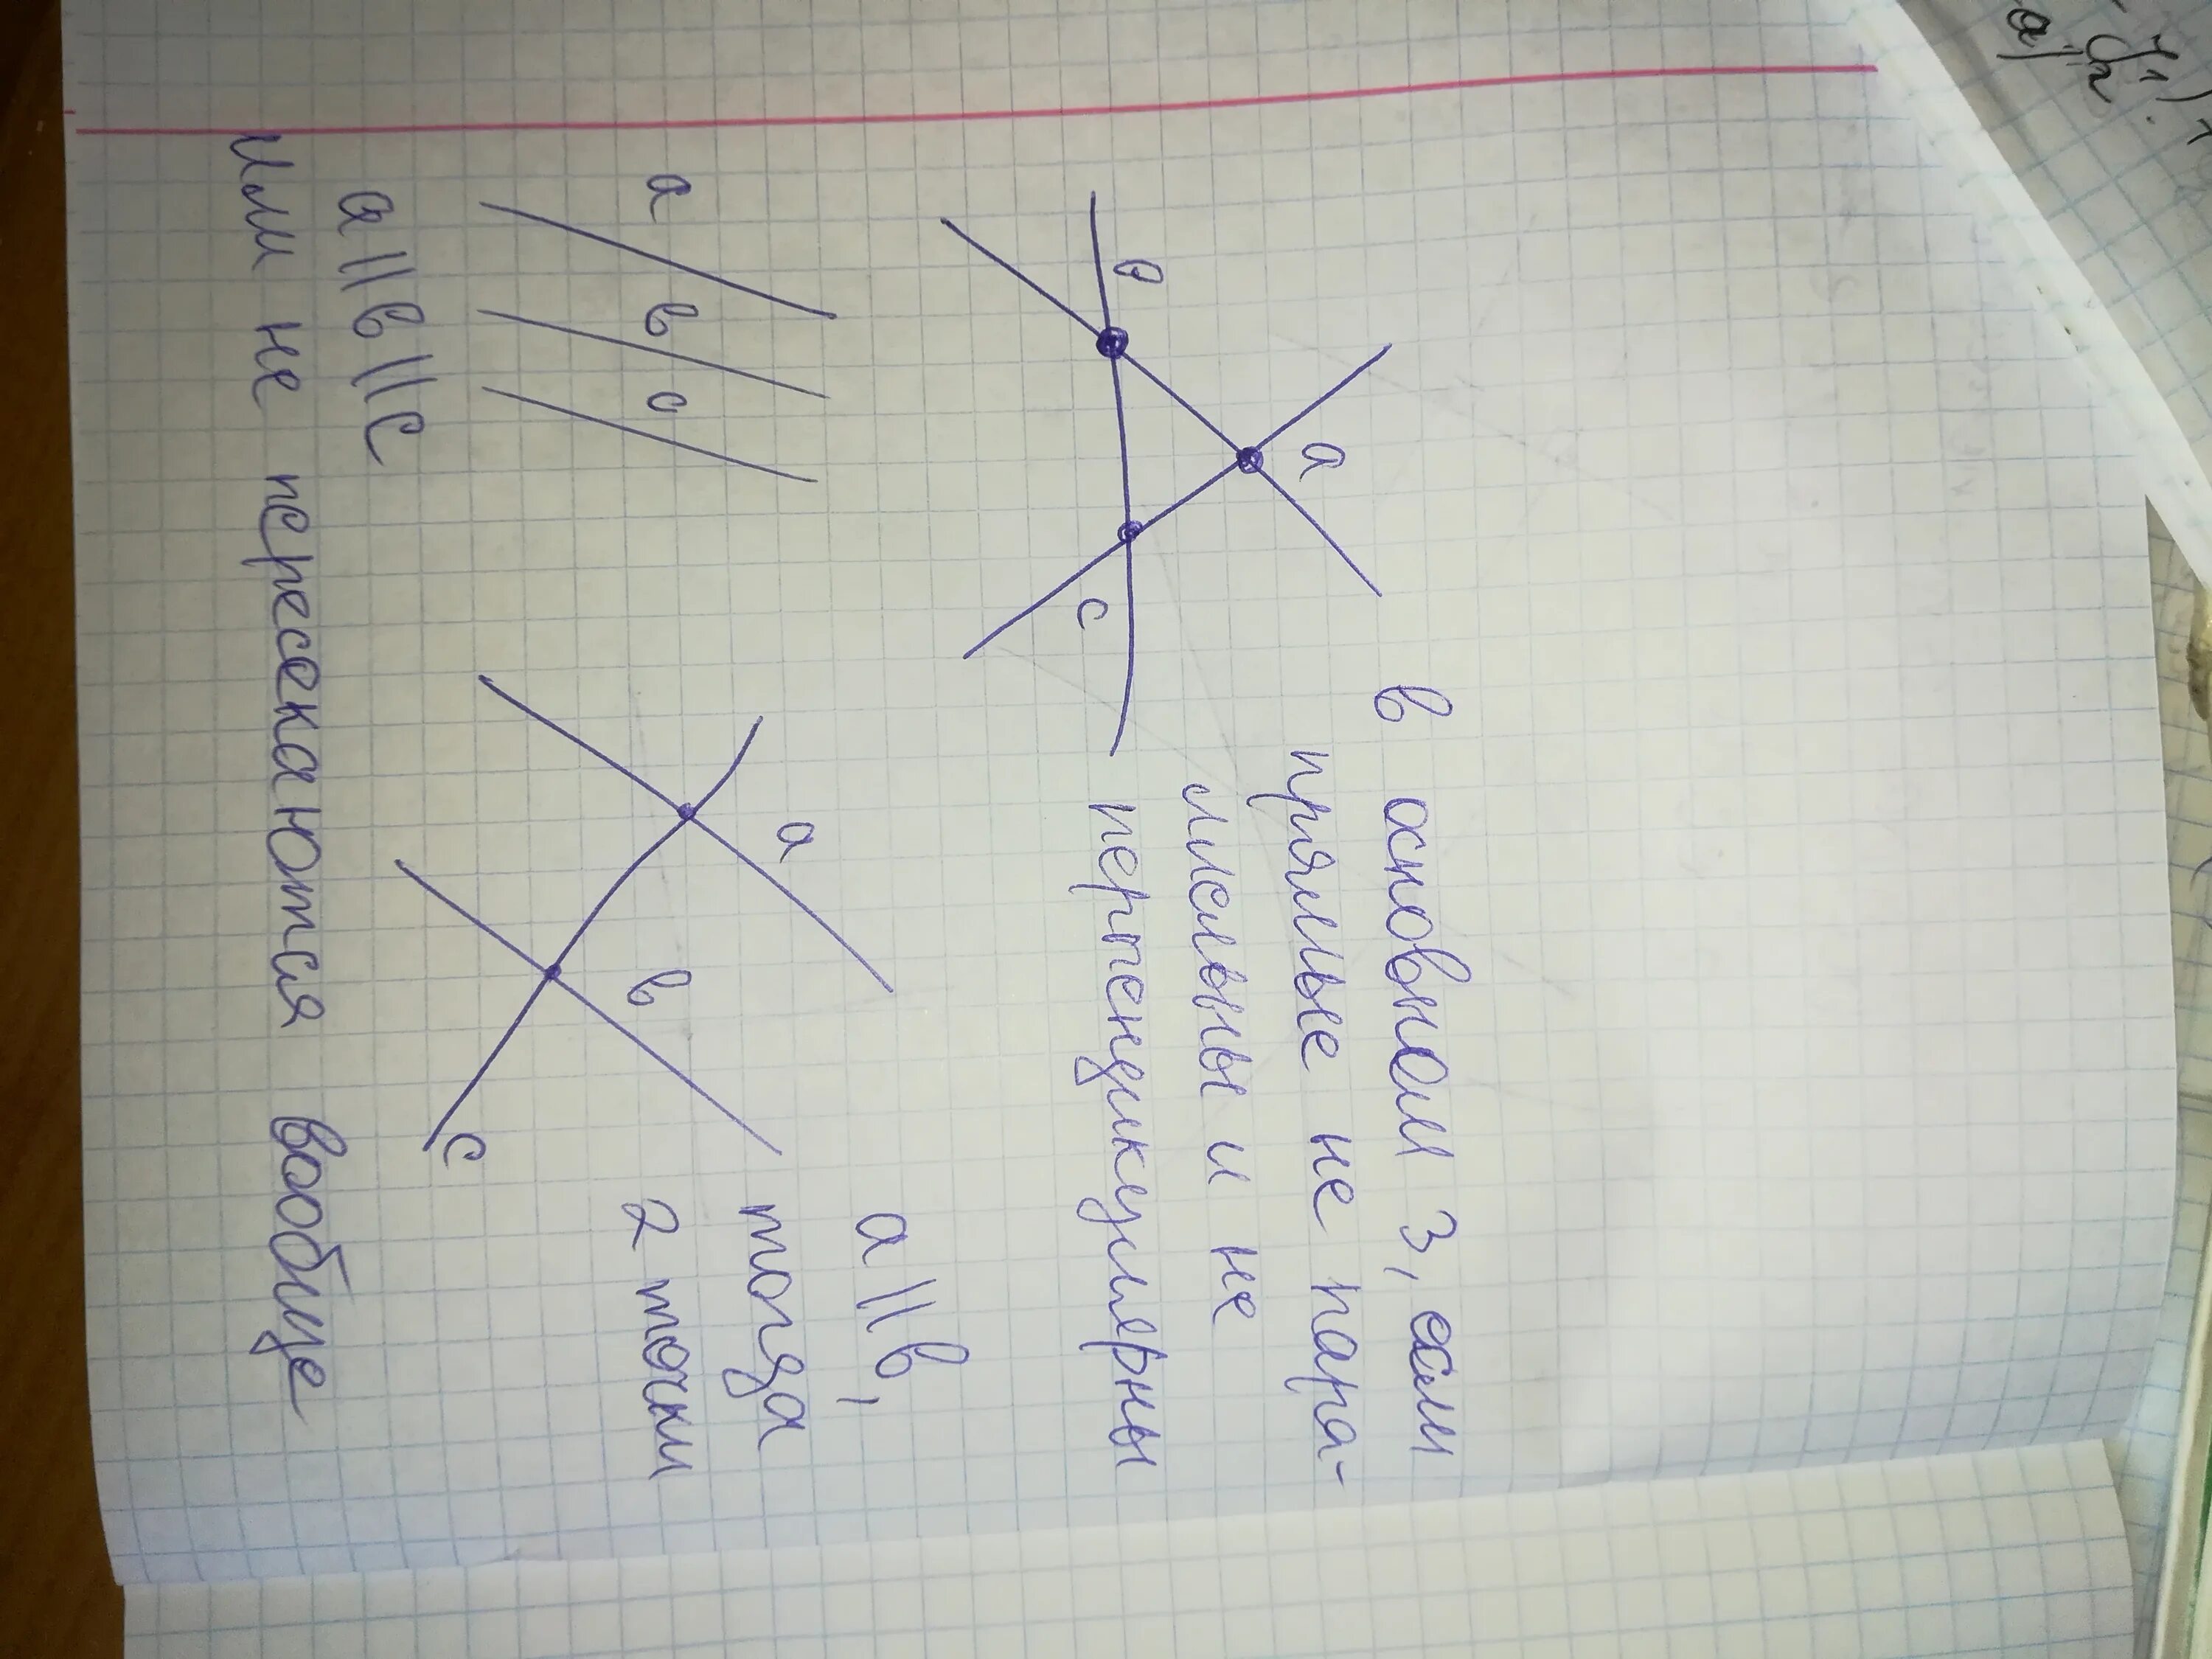 в основном 3, если
прямые не пара-
ллельны и не
перпендикулярны
в
а
с
а||в,
тогда
2 точки
а
в
с
а
в
с
а||в||с
Или не пересекаются вообще